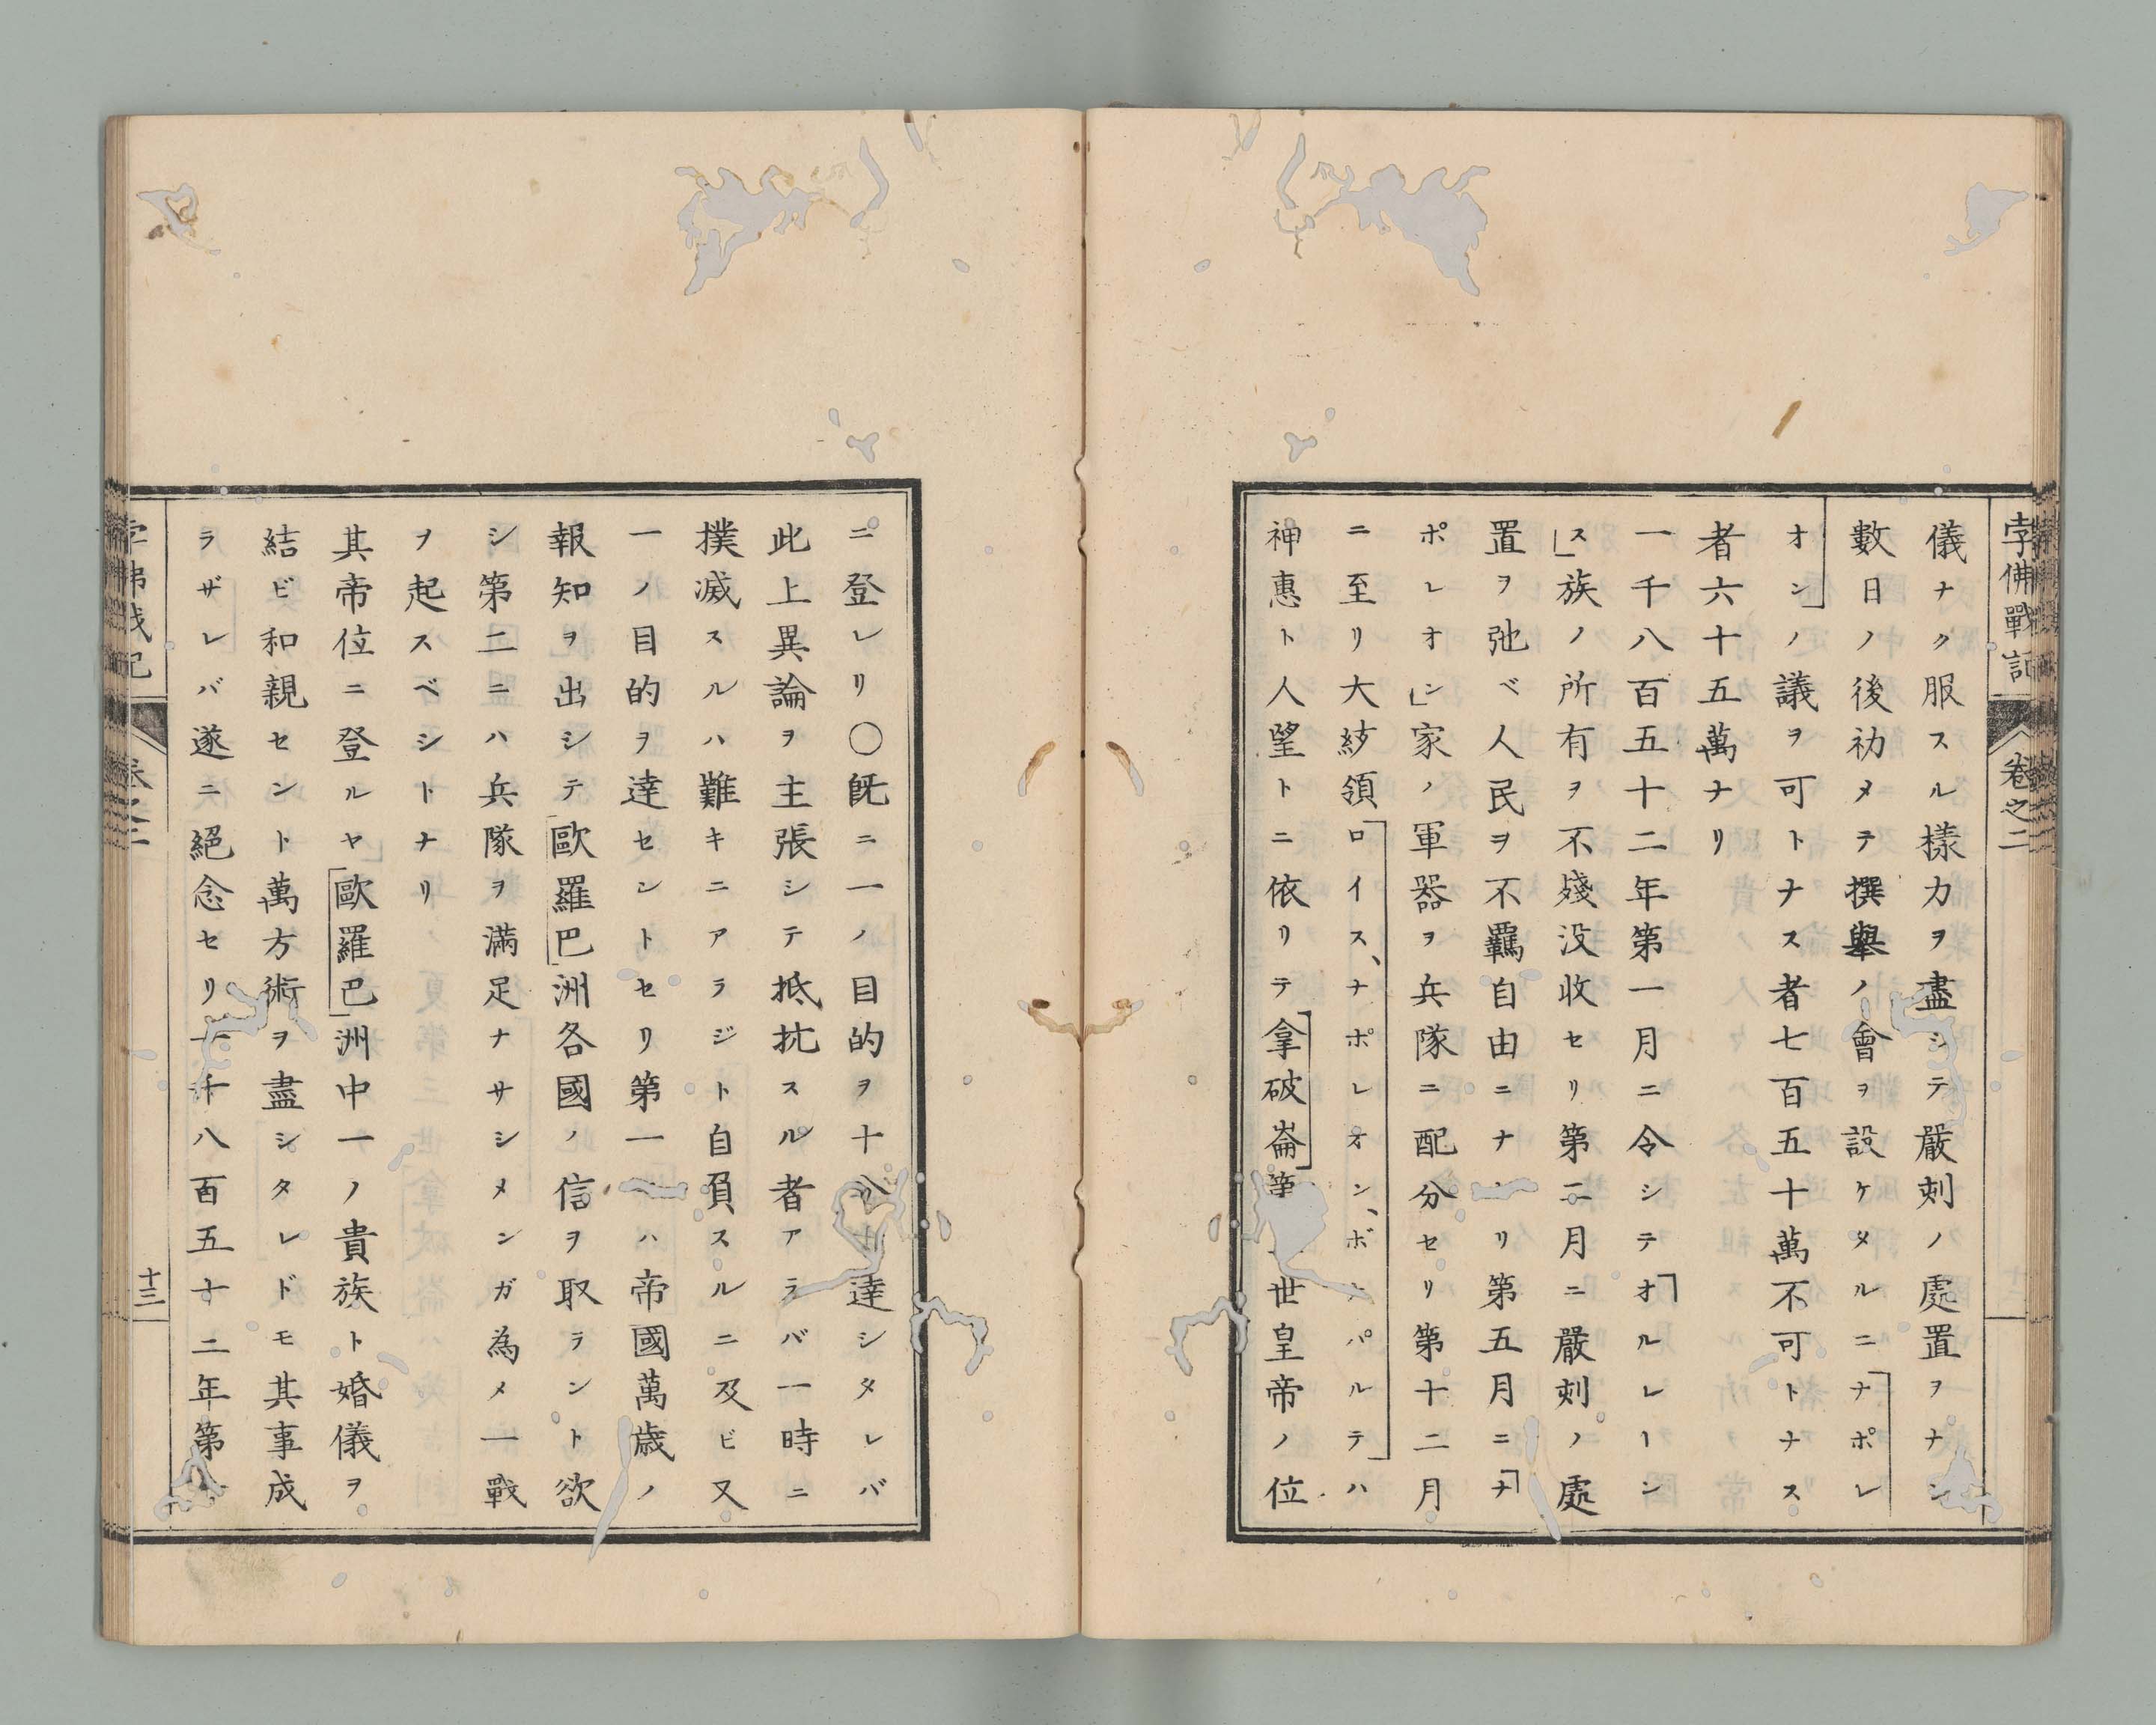 孛佛戰記 卷之二
儀ナク服スル樣力ヲ盡シテ嚴刻ノ處置ヲナシ
數日ノ後初メテ撰擧ノ會ヲ設ケタルニ「ナポレ
オン」ノ議ヲ可トナス者七百五十萬不可トナス
者六十五萬ナリ
一千八百五十二年第一月ニ令シテ「オルレーン
ス」族ノ所有ヲ不殘没收セリ第二月ニ嚴刻ノ處
置ヲ弛ベ人民ヲ不羈自由ニナ リ第五月ニ「ナ
ポレオン」家ノ軍器ヲ兵隊ニ配分セリ第十二月
ニ至リ大統領「ロイス、ナポレオン、ボ パルテ」ハ
神惠ト人望トニ依リテ「拿破崙」第 世皇帝ノ位
ニ登レリ〇旣ニ一ノ目的ヲ十分 達シタレバ
此上異論ヲ主張シテ抵抗スル者アラバ一時ニ
撲滅スルハ難キニアラジト自負スルニ及ビ又
一ノ目的ヲ達セントセリ第一 ハ帝國萬歳ノ
報知ヲ出シテ「歐羅巴」洲各國ノ信ヲ取ラント欲
シ第二ニハ兵隊ヲ滿足ナサシメンガ為メ一戰
ヲ起スベシトナリ
其帝位ニ登ルヤ「歐羅巴」洲中一ノ貴族ト婚儀ヲ
結ビ和親セント萬方術ヲ盡シタレドモ其事成
ラザレバ遂ニ絕念セリ一千八百五十二年第
孛佛戰記 卷之二 十三